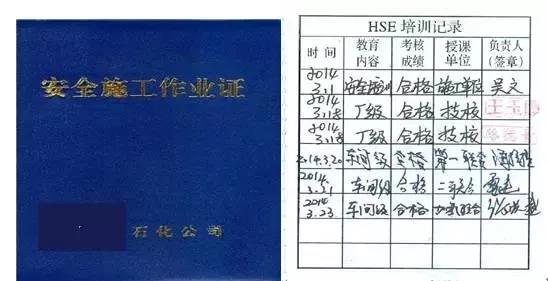 安全施工作业证
石化公司
HSE 培训记录
时间 教育内容 考核成绩 授课单位 负责人（签章）
2014 3.1 安全培训 合格 施工单位 吴文
2014 3.18 厂级 合格 技校
2014 3.18 厂级 合格 技校
2014.3.20 车间级 合格 第一联合
2014. 3.21 车间级 合格 二联合
2014 3.23 车间级 合格